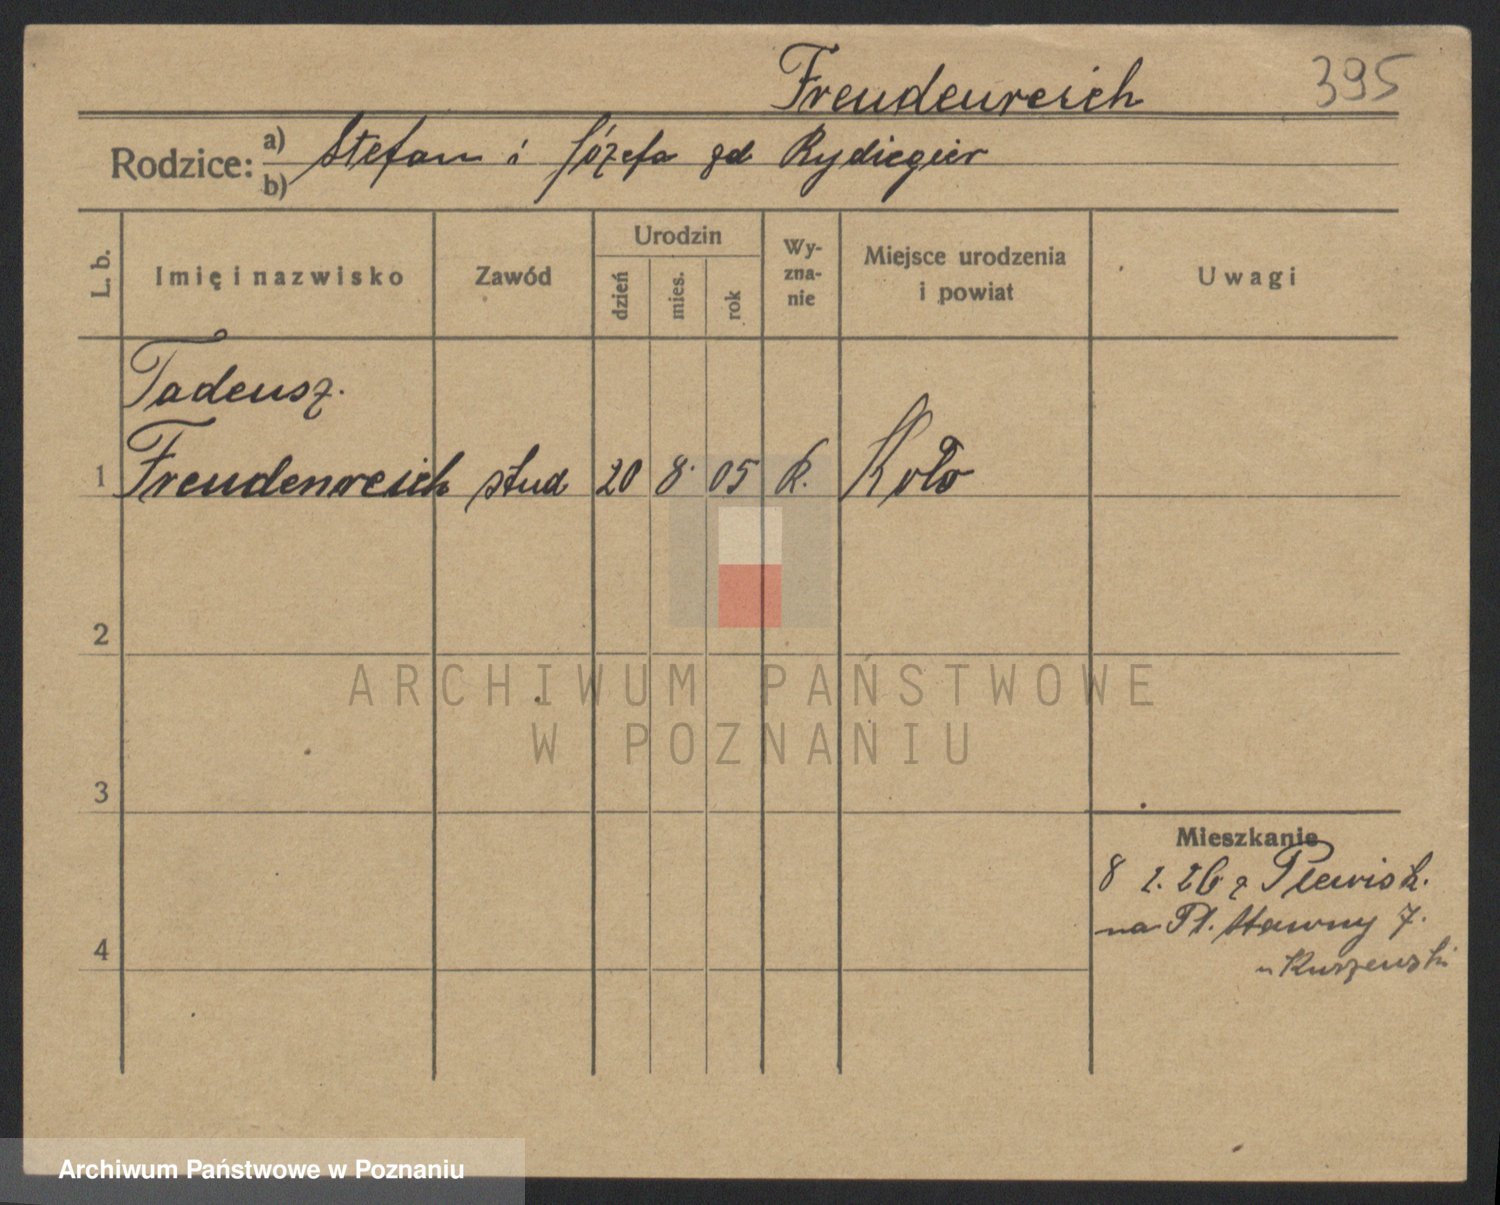 Freudenreich 395
Rodzice: a) Stefan i Józefa zd Rydiegier
b)
L. b. Imię i nazwisko Zawód Urodzin dzień mies. rok Wy-zna-nie Miejsce urodzenia i powiat Uwagi
Tadeusz.
1 Freudenreich stud 20 8. 05 k. Koło
2
ARCHIWUM PAŃSTWOWE
W POZNANIU
3
Mieszkanie
8 2. 26 z Plewisk.
na Pl. Stawny 7.
4
u Kuszewski
Archiwum Państwowe w Poznaniu